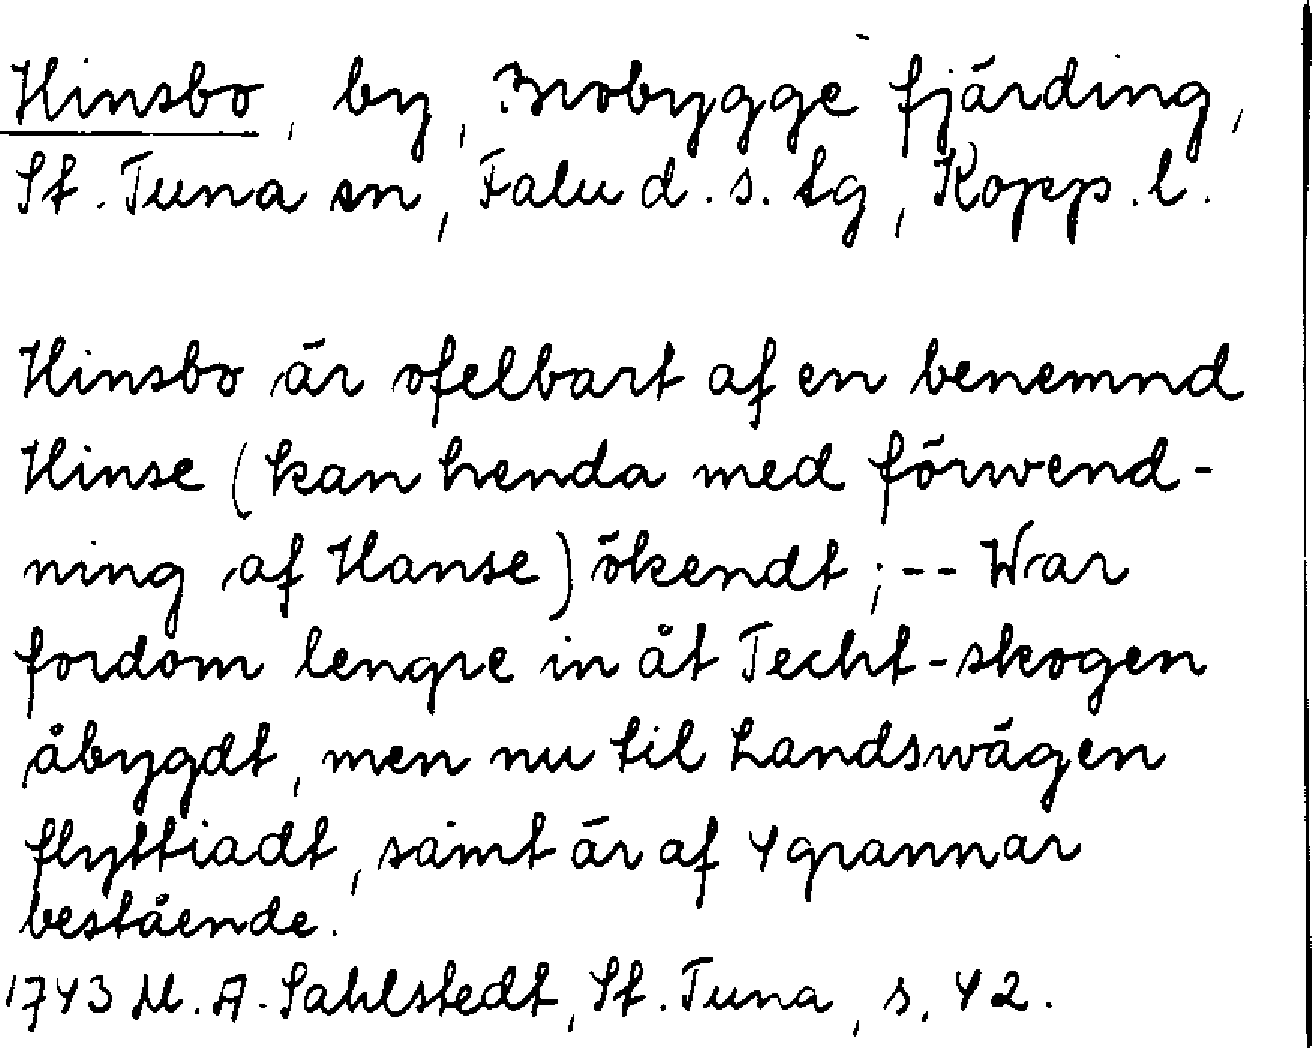 Hinsbo, by, Brobygge fjärding,
St. Tuna sn, Falu d. s. tg, Kopp. l.
Hinsbo är ofelbart af en benemnd
Hinse (kan henda med förwend-
ning af Hanse) ökendt; -- War
fordom lengre in åt Techt-skogen
åbygdt, men nu til Landswägen
flyttiadt, samt är af 4 grannar
bestående.
1743 M. A. Sahlstedt, St. Tuna, s. 42.